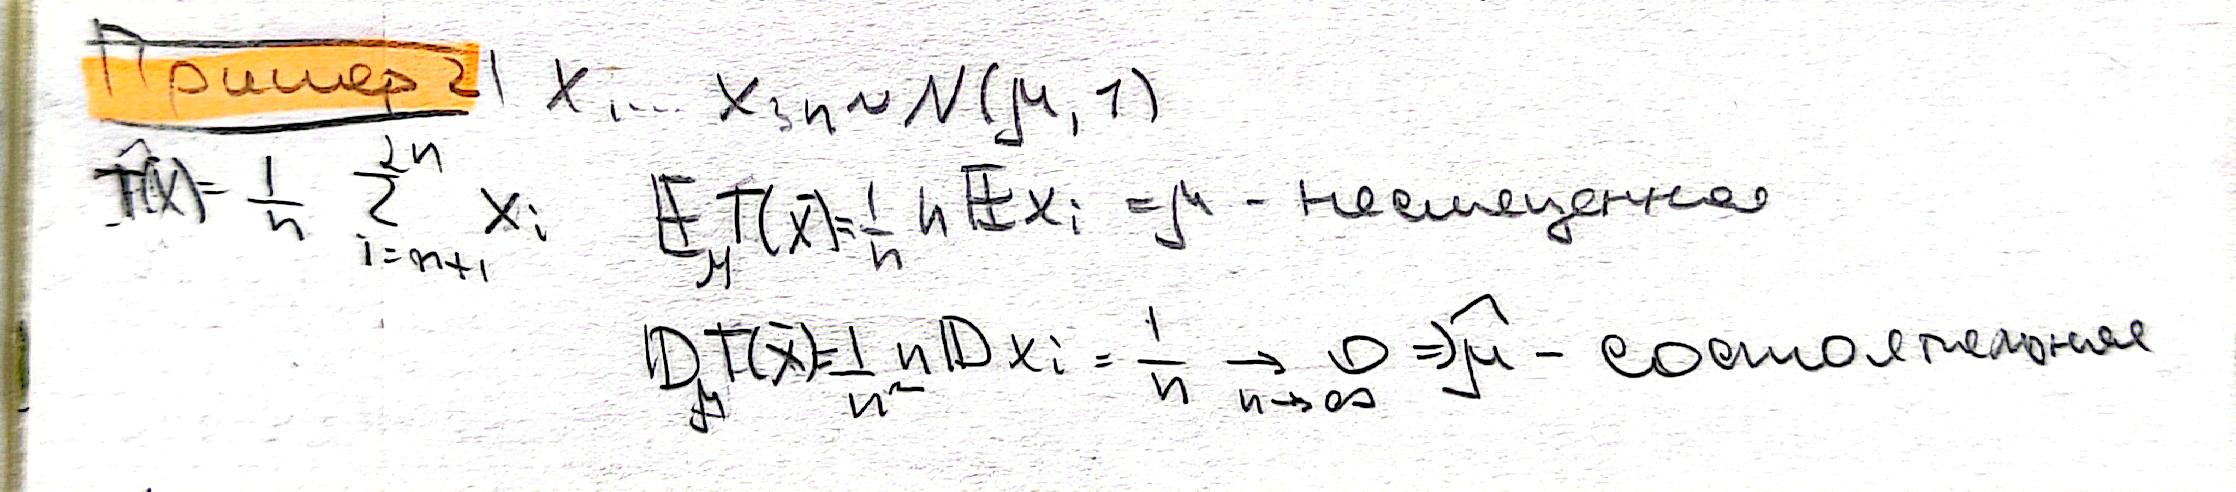 Пример 2| X₁... X₃ₙ ~ N(μ, 1)
T̂(X) = 1/n Σ_{i=n+1}^{2n} Xᵢ 𝔼_μ T(X̄) = 1/n n 𝔼 xᵢ = μ - несмещенная
𝔻_μ T(X̄) = 1/n² n 𝔻 xᵢ = 1/n →_{n→∞} 0 ⇒ μ̂ - состоятельная